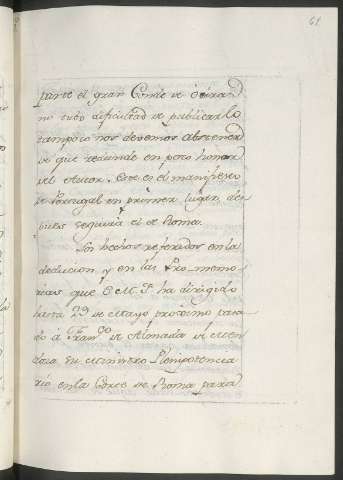 61
parte el gran Conde de Oeira
no tubo dificultad de publicarlo
tampoco nos devemos abstener
de que redunde en poco honor
del Autor. Este es el manifiesto
de Portugal en primer lugar, des
pues seguirá el de Roma.
Los hechos referidos en la
deducion, y en las Pro-memo
rias que S. M. F. ha dirigido
hasta 29 de Mayo proximo pasa
do á Fran.co de Almada de Men
doza su Ministro Plenipotencia
rio en la Corte de Roma para